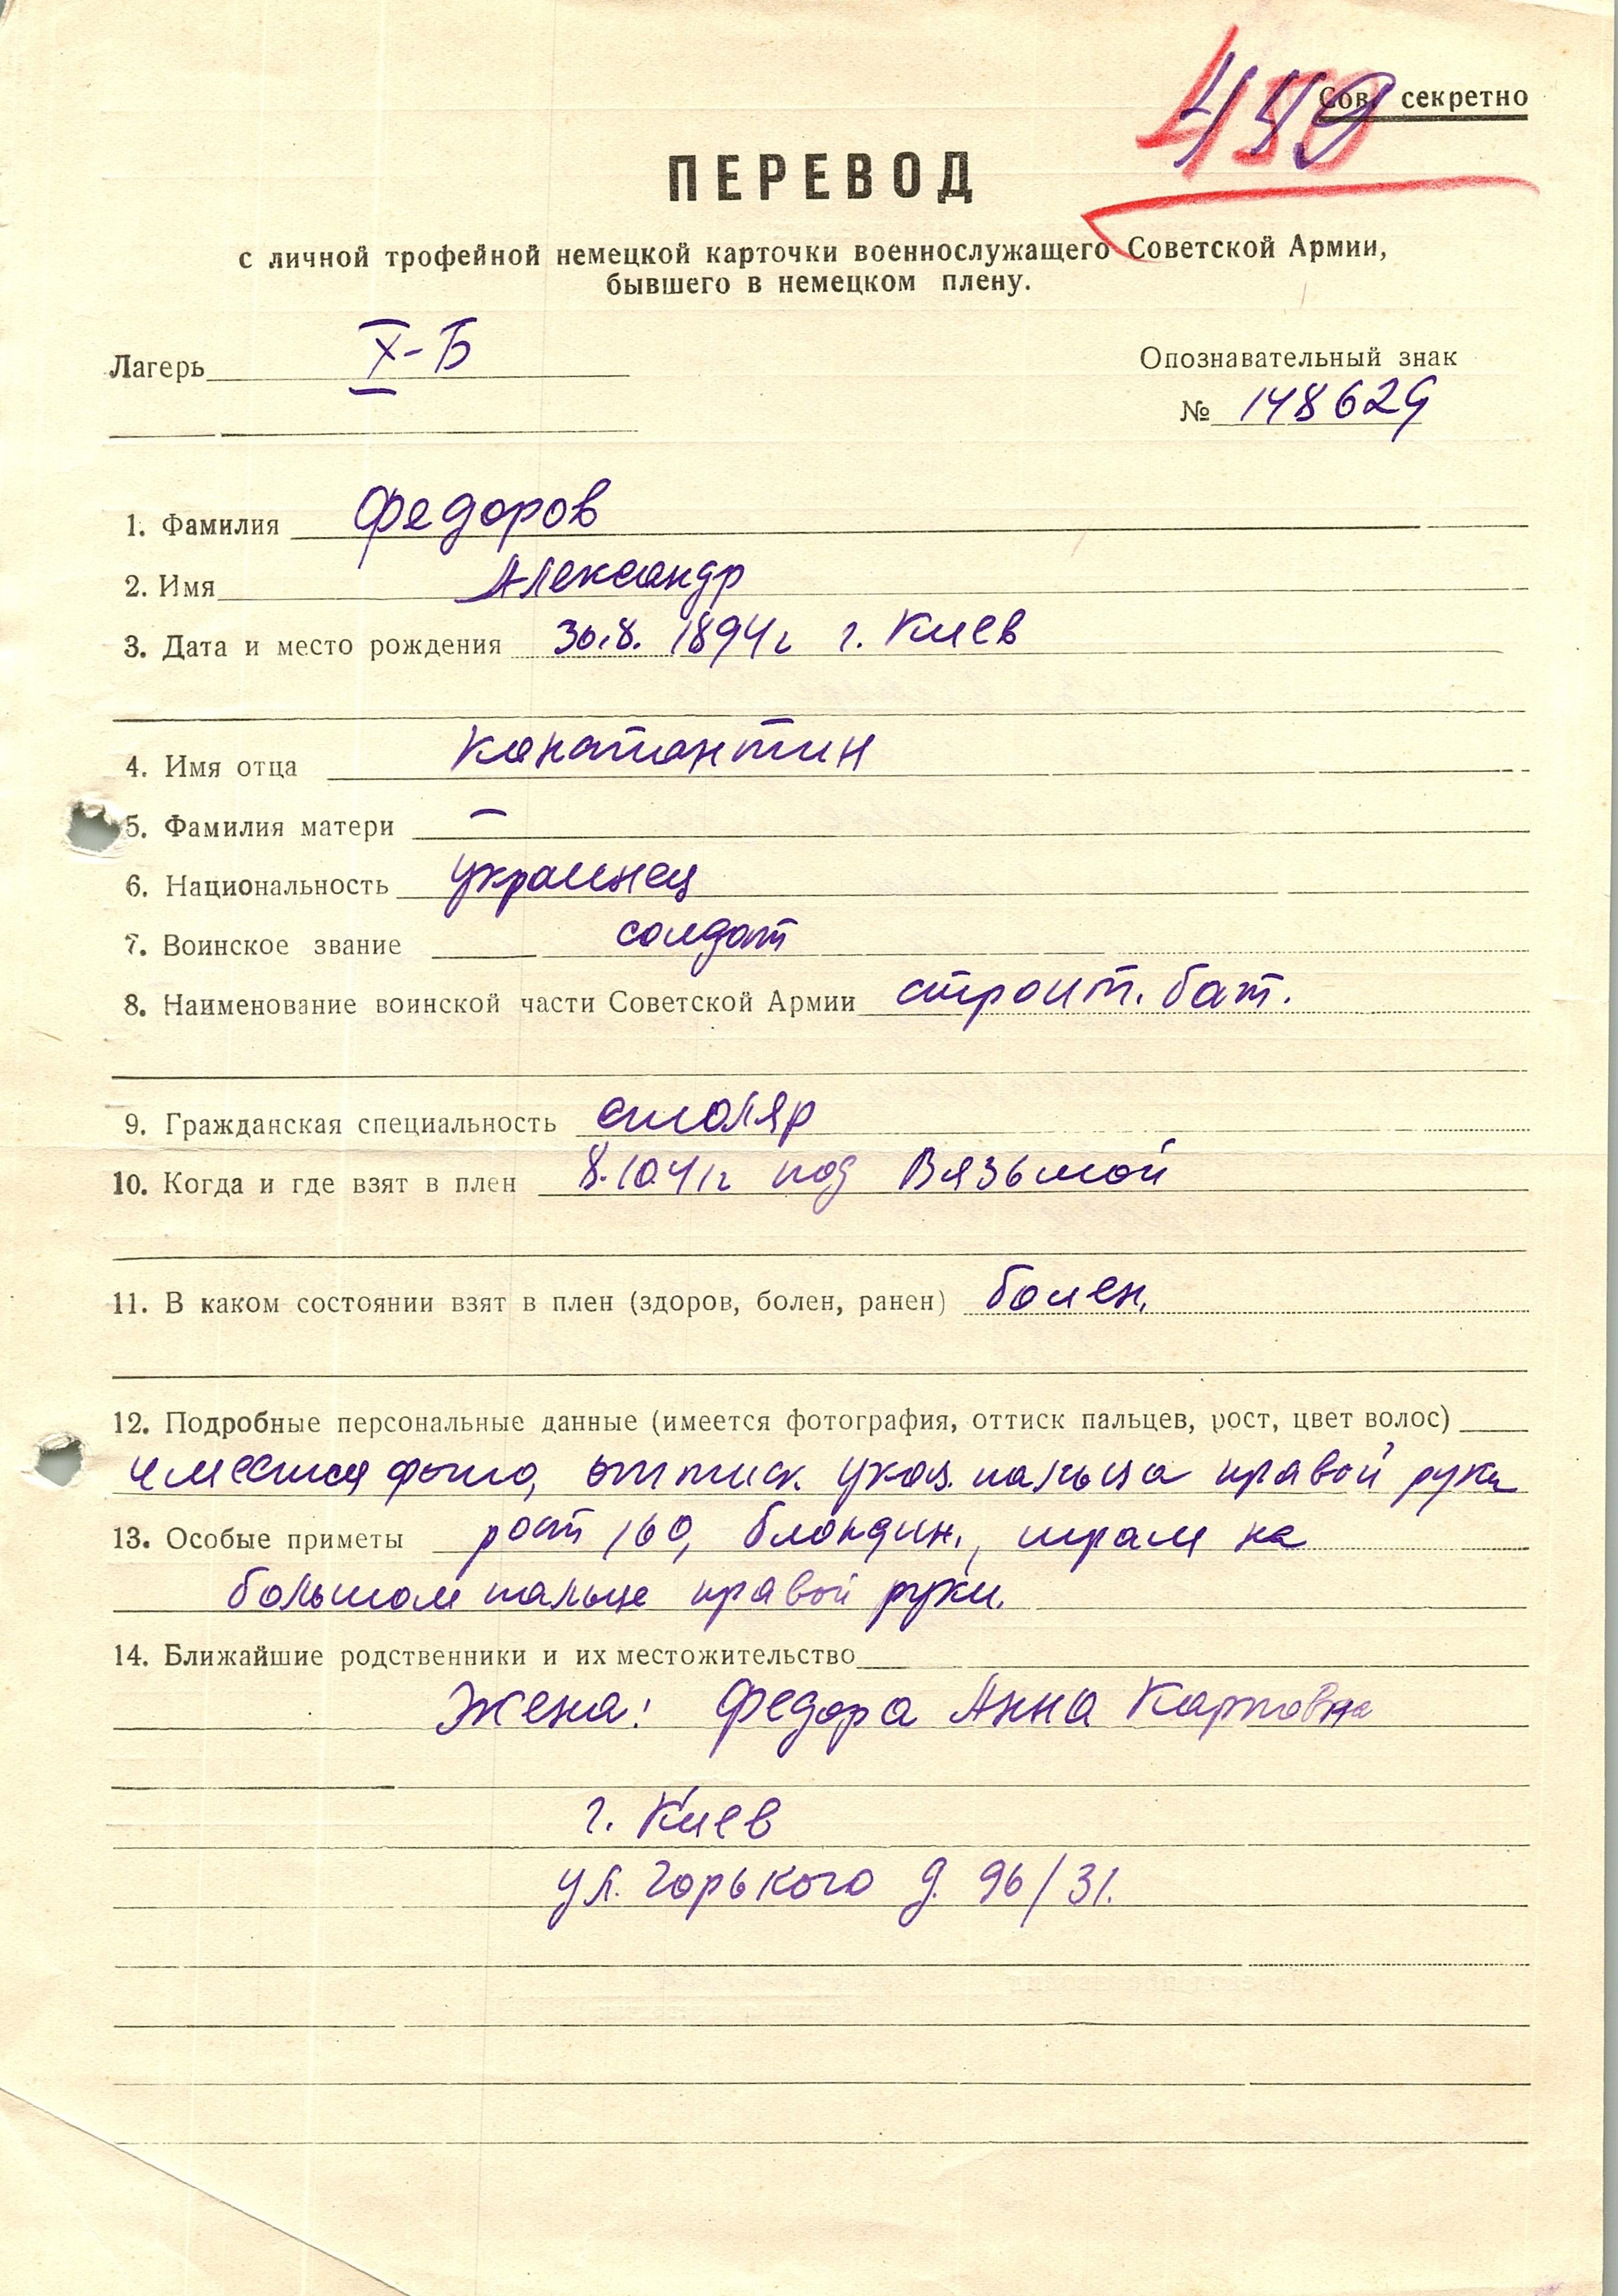 449
Сов. секретно
ПЕРЕВОД
с личной трофейной немецкой карточки военнослужащего Советской Армии,
бывшего в немецком плену.
Лагерь X-Б
Опознавательный знак
№ 148629
1. Фамилия Федоров
2. Имя Александр
3. Дата и место рождения 30.8. 1894г г. Киев
4. Имя отца Константин
5. Фамилия матери —
6. Национальность украинец
7. Воинское звание солдат
8. Наименование воинской части Советской Армии строит. бат.
9. Гражданская специальность столяр
10. Когда и где взят в плен 8.10.41г под Вязьмой
11. В каком состоянии взят в плен (здоров, болен, ранен) болен.
12. Подробные персональные данные (имеется фотография, оттиск пальцев, рост, цвет волос)
имеется фото, оттиск. указ. пальца правой руки
13. Особые приметы рост 160, блондин., шрам на
большом пальце правой руки.
14. Ближайшие родственники и их местожительство
Жена: Федора Анна Карповна
г. Киев
ул. Горького д. 96/31.